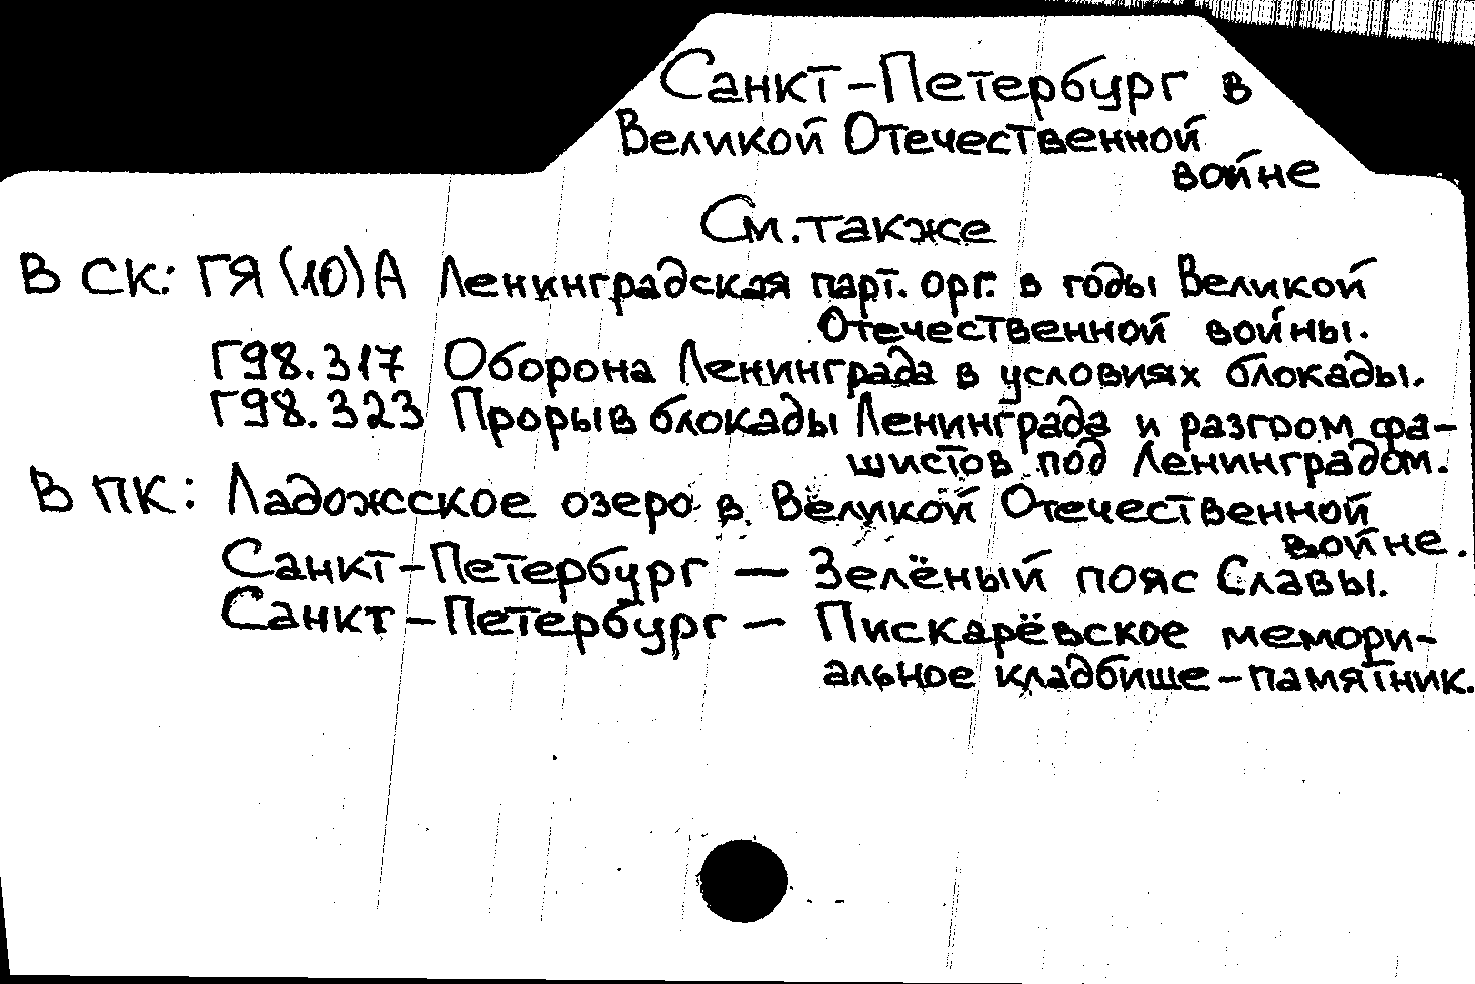 Санкт-Петербург в
Великой Отечественной
войне
См. также
В СК: ГЯ(10)А Ленинградская парт. орг. в годы Великой
Отечественной войны.
Г98.317 Оборона Ленинграда в условиях блокады.
Г98.323 Прорыв блокады Ленинграда и разгром фа-
шистов под Ленинградом.
В ПК: Ладожсское озеро в Великой Отечественной
войне.
Санкт-Петербург — Зелёный пояс Славы.
Санкт-Петербург — Пискарёвское мемори-
альное кладбише-памятник.